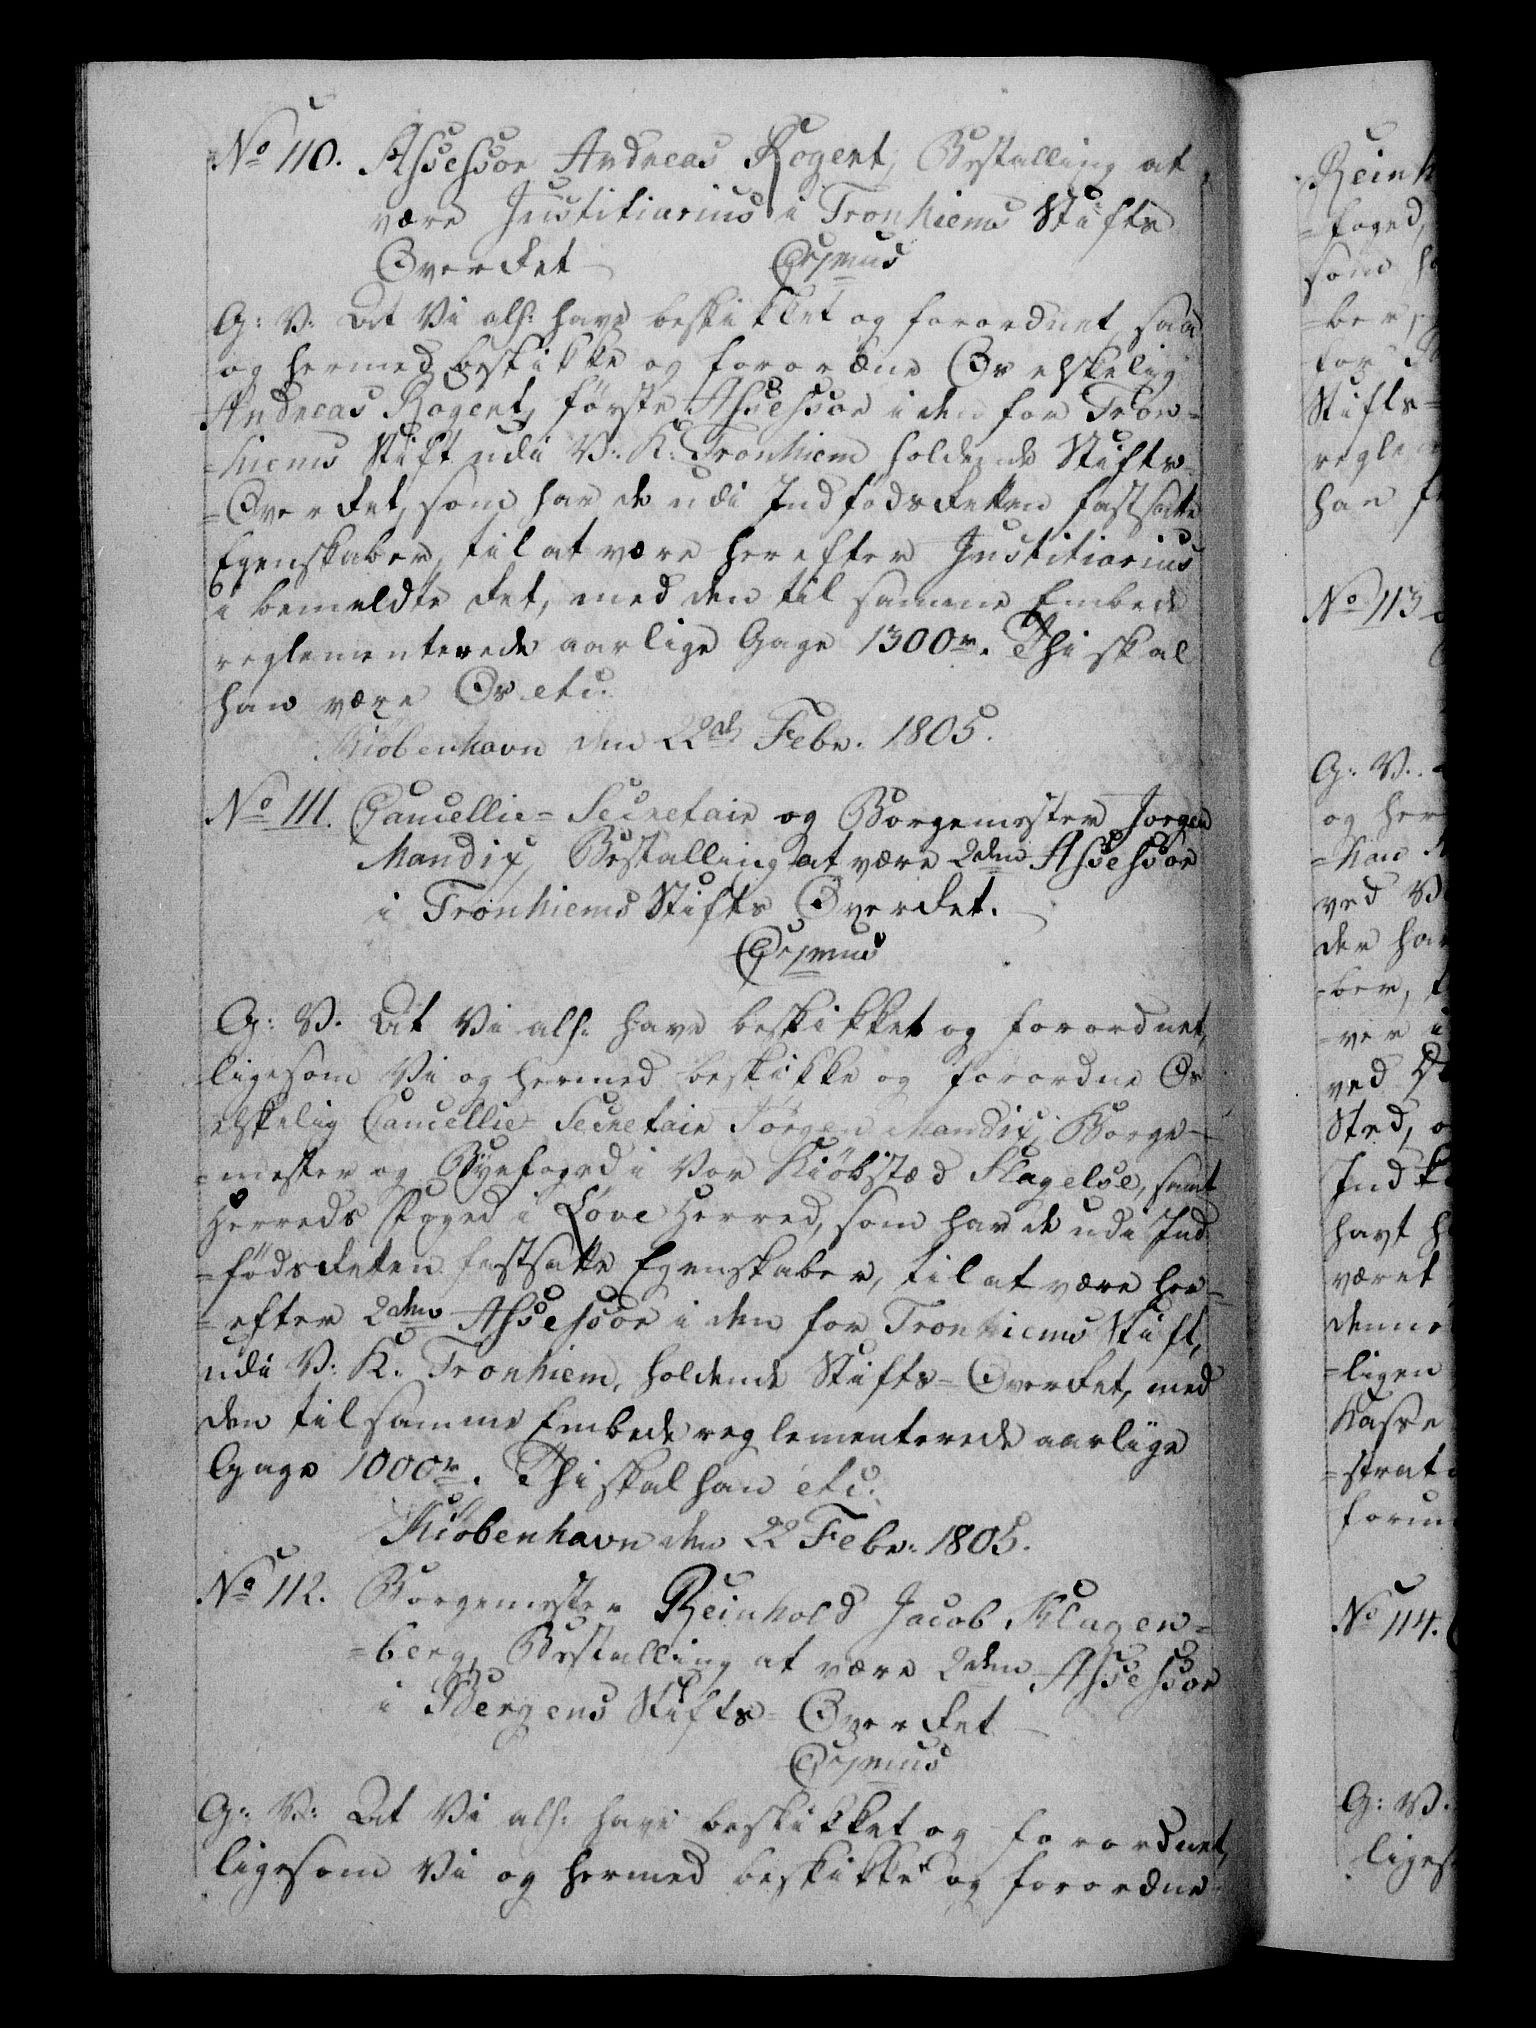 No 110. Assessor Andreas Rogert, Bestalling at
være Justitiarius i Tronhiems Stifts
Overret
G: V: At Vi als: have beskikket og forordnet, saa
og hermed beskikke og forordne Os elskelig
Andreas Rogert, første Assessor i den for Tron-
=hiems Stift udi V: K: Tronhiem holdende Stifts-
=Overret, som har de udi Indfødsretten fastsatte
Egenskaber, til at være herefter Justitiarius
i bemeldte Ret, med den til samme Embede
reglementerede aarlige Gage 1300 r. Thi skal
han være Os etc:
Kiøbenhavn den 22d Febr. 1805.
No 111. Cancellie-Secretair og Borgemester Jørgen
Mandix, Bestalling at være 2den Assessor
i Tronhiems Stifts Overret.
G: V. At Vi als: have beskikket og forordnet,
ligesom Vi og hermed beskikke og forordne Os
elskelig Cancellie-Secretair Jørgen Mandix, Borge-
=mester og Byefoged i Vor Kiøbstæd Slagelse, samt
Herreds Foged i Løve Herred, som har de udi Ind-
=fødsretten fastsatte Egenskaber, til at være her-
=efter 2den Assessor i den for Tronhiems Stift,
udi V: K. Tronhiem, holdende Stifts-Overret, med
den til samme Embede reglementerede aarlige
Gage 1000 r. Thi skal han etc.
Kiøbenhavn den 22 Febr. 1805.
No 112. Borgemester Reinhold Jacob Klagen-
=berg, Bestalling at være 2den Assessor
i Bergens Stifts-Overret
G: V: At Vi als: have beskikket og forordnet,
ligesom Vi og hermed beskikke og forordne
Reinh
=foged,
som ha
=ber,
for
Stifts-
regle
han
No 113
G: V.
og her
=kan
ved V
der har
=ber, t
=ver i
ved
Sted, o
Ind
havt h
været
denne
=ligen
Kasse
=strat
forun
No 114.
G: V.
liges